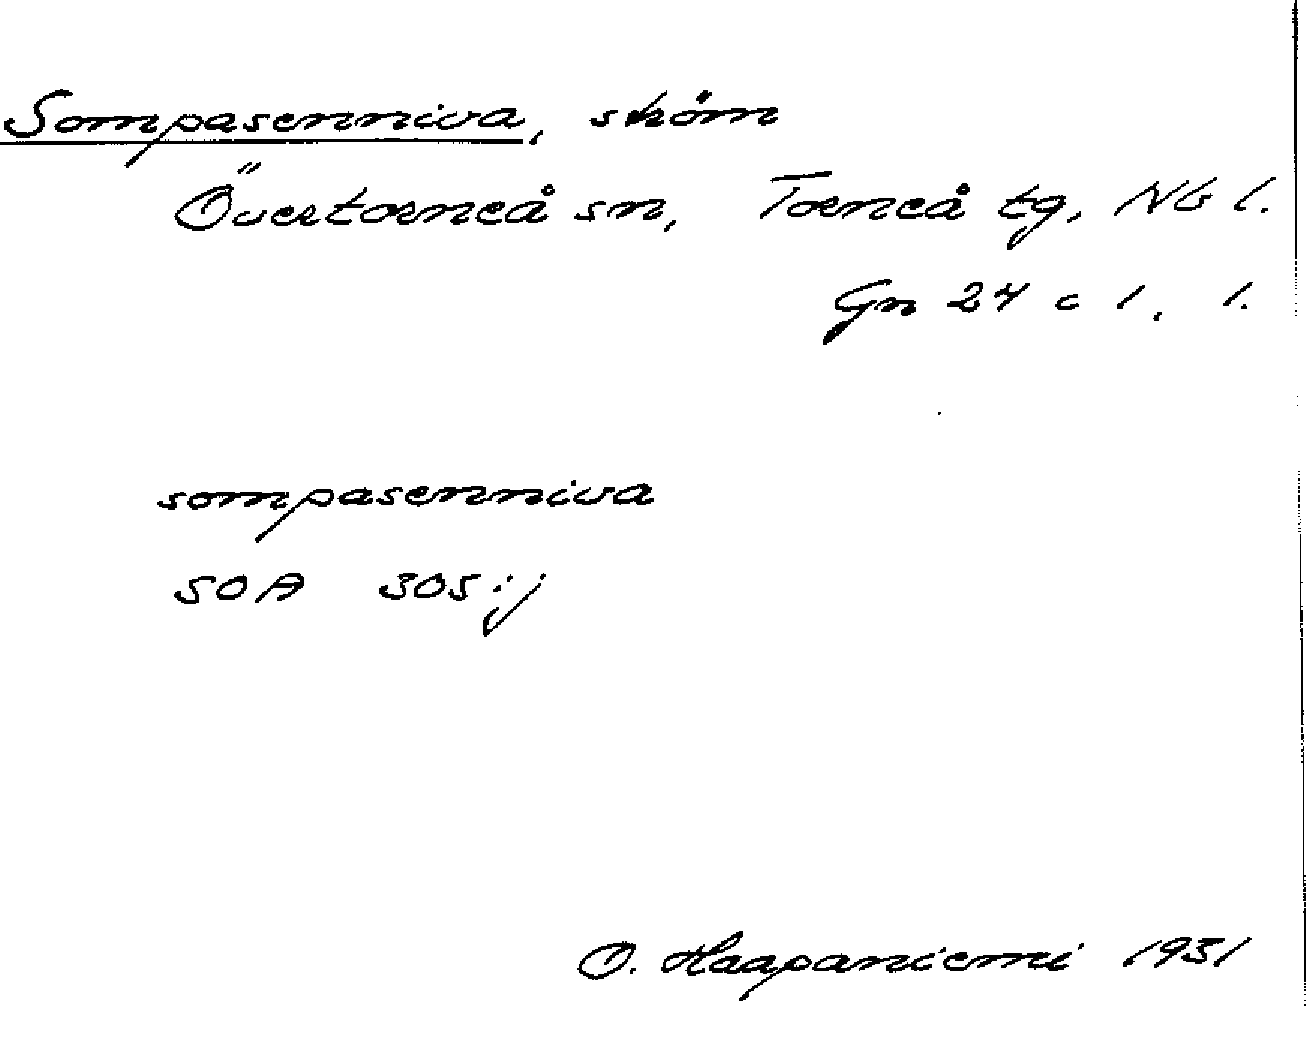 Sompasenniva, ström
Övertorneå sn, Torneå tg, Nb l.
Gn 24 c 1, 1.
sompasenniva
SOA 305:j
O. Haapaniemi 1931